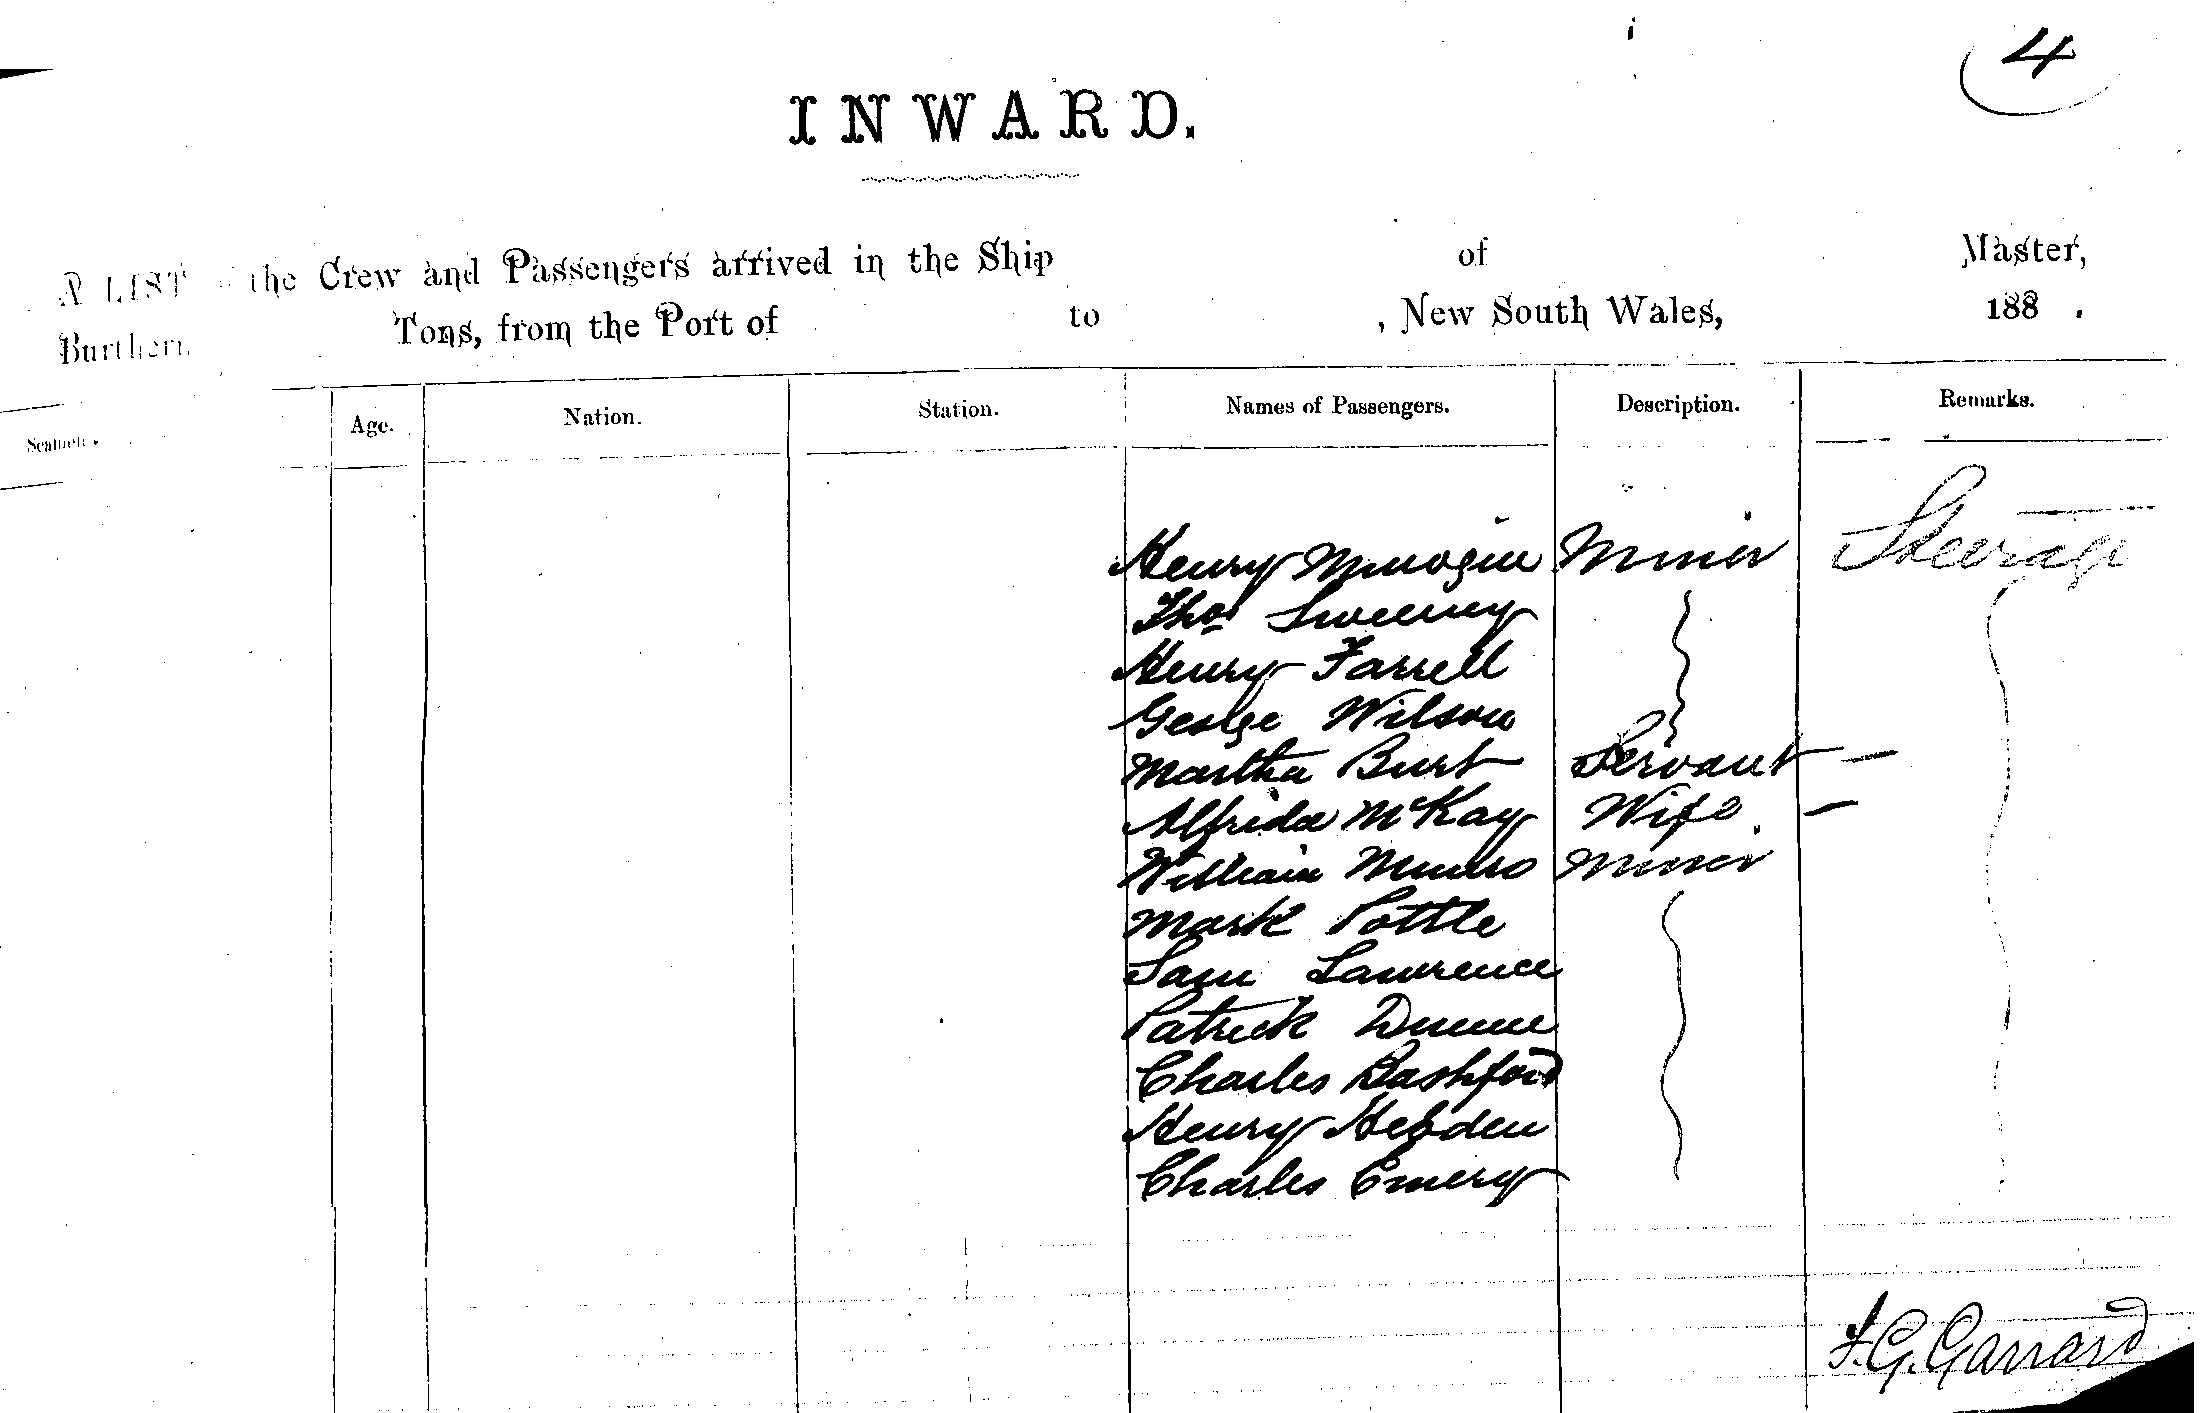 4
INWARD.
A LIST the Crew and Passengers arrived in the Ship of Master,
Burthen Tons, from the Port of to , New South Wales, 188 .
Age. Nation. Station. Names of Passengers. Description. Remarks.
Henry Minogue Miner Steerage
Thos Sweeney
Henry Farrell
George Wilson
Martha Burt Servant —
Alfrida McKay Wife —
William Munro Miner
Mark Pottle
Sam Lawrence
Patrick Dunne
Charles Bashford
Henry Hebden
Charles Emery
F. G. Garrard